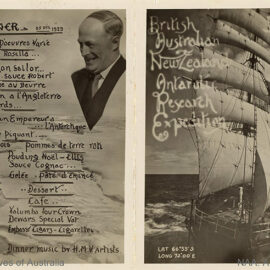 NER
25 DEC 1929
D'oeuvres Varié
Rosilla
on Sailor
Sauce Robert
au Beurre
a l'Angleterre
an Empereur
l'Antarctique
Piquant
Pommes de terre roti
Pouding Noël - Ellis
Sauce Cognac
Gelée - Pâte d'Émincé
Dessert
Cafe
Yalumba Four Crown
Dewars Special Vat
Embassy Cigars - Cigarettes
Dinner music by H.M.V Artists
British
Australian
New Zealand
Antarctic
Research
Expedition
LAT 66°33'S
LONG 72°00'E
ves of Australia
NAA: